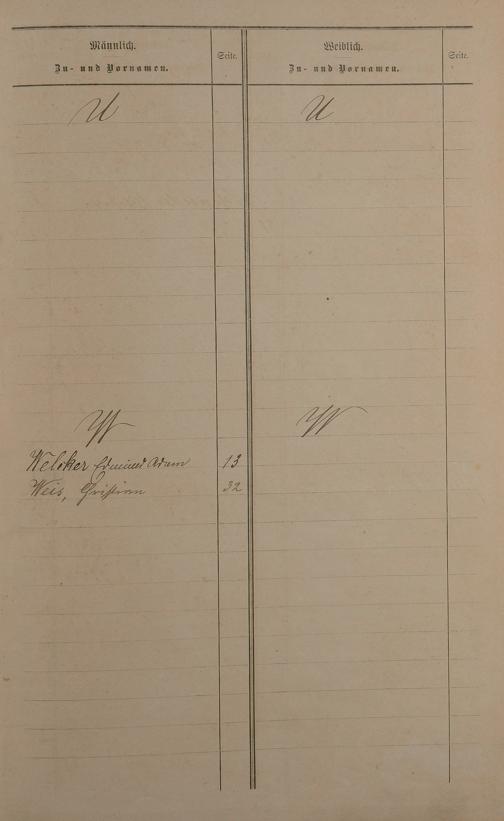 Männlich.
Zu- und Vornamen.
Seite.
Weiblich.
Zu- und Vornamen.
Seite.
U
U
W
W
Welcker Edmund Adam 13
Weis, Christian 32